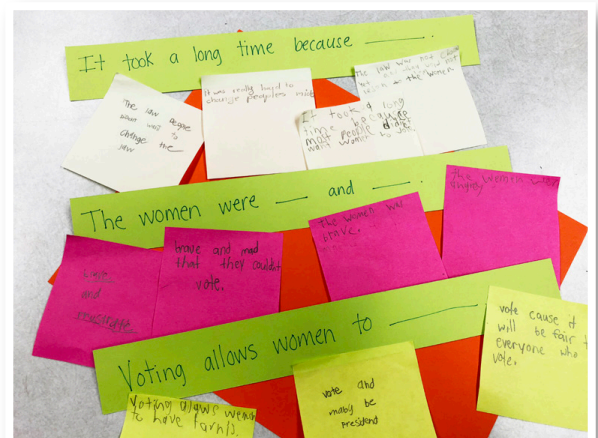 It took a long time because ____.
The law people
what will
change the
law
it was really hard to
change peoples
It took a long
time because
most people didnt
want women to vote.
the women
The women were ____ and ____.
brave
and
brave and mad
that they couldnt
vote.
The women was
brave.
The women were
Voting allows women to ____
Voting alaws
to have
vote and
maby be
president
vote cause it
will be fair
everyone who
vote.